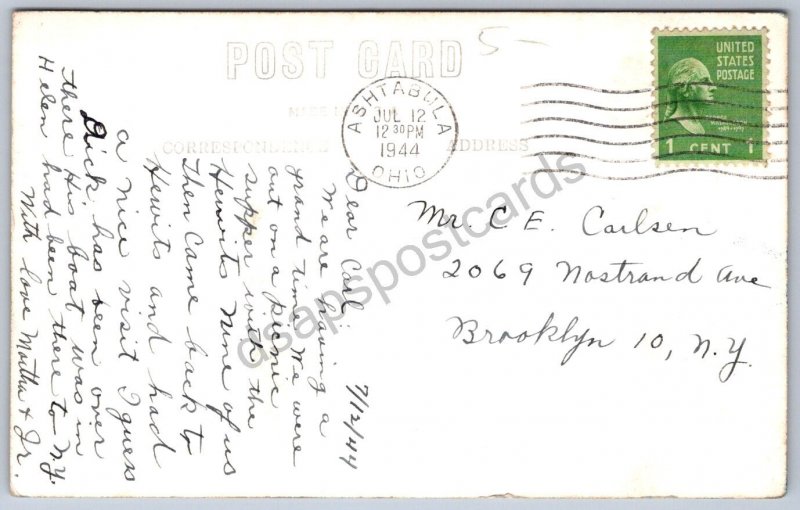 POST CARD
5-
CORRESPONDENCE
ADDRESS
ASHTABULA
JUL 12
12 30 PM
1944
OHIO
UNITED
STATES
POSTAGE
1 CENT 1
7/12/44
Dear Carl:
We are having a
grand time. We were
out on a picnic
supper with the
Hewits Nine of us
Then came back to
Hewits and had
a nice visit I guess
Dick has been over
there His boat was in
Helen had been there to N.Y.
With love Martha & Jr.
Mr. C E. Carlsen
2069 Nostrand Ave
Brooklyn 10, N.Y.
asapspostcards